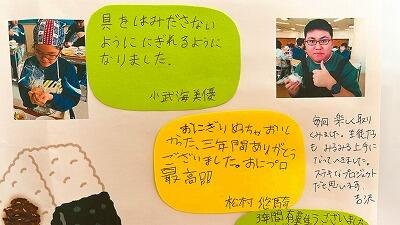 具をはみださない
ようににぎれるように
なりました。
小武海美優
おにぎりめちゃおいし
かった、三年間ありがとう
ございました。おにプロ
最高!!!
松村 悠
毎回 楽しく取り
くみました。生徒たち
も みるみる上手に
なっていきました。
ステキなプロジェクト
だと思います
3年間有難うございました